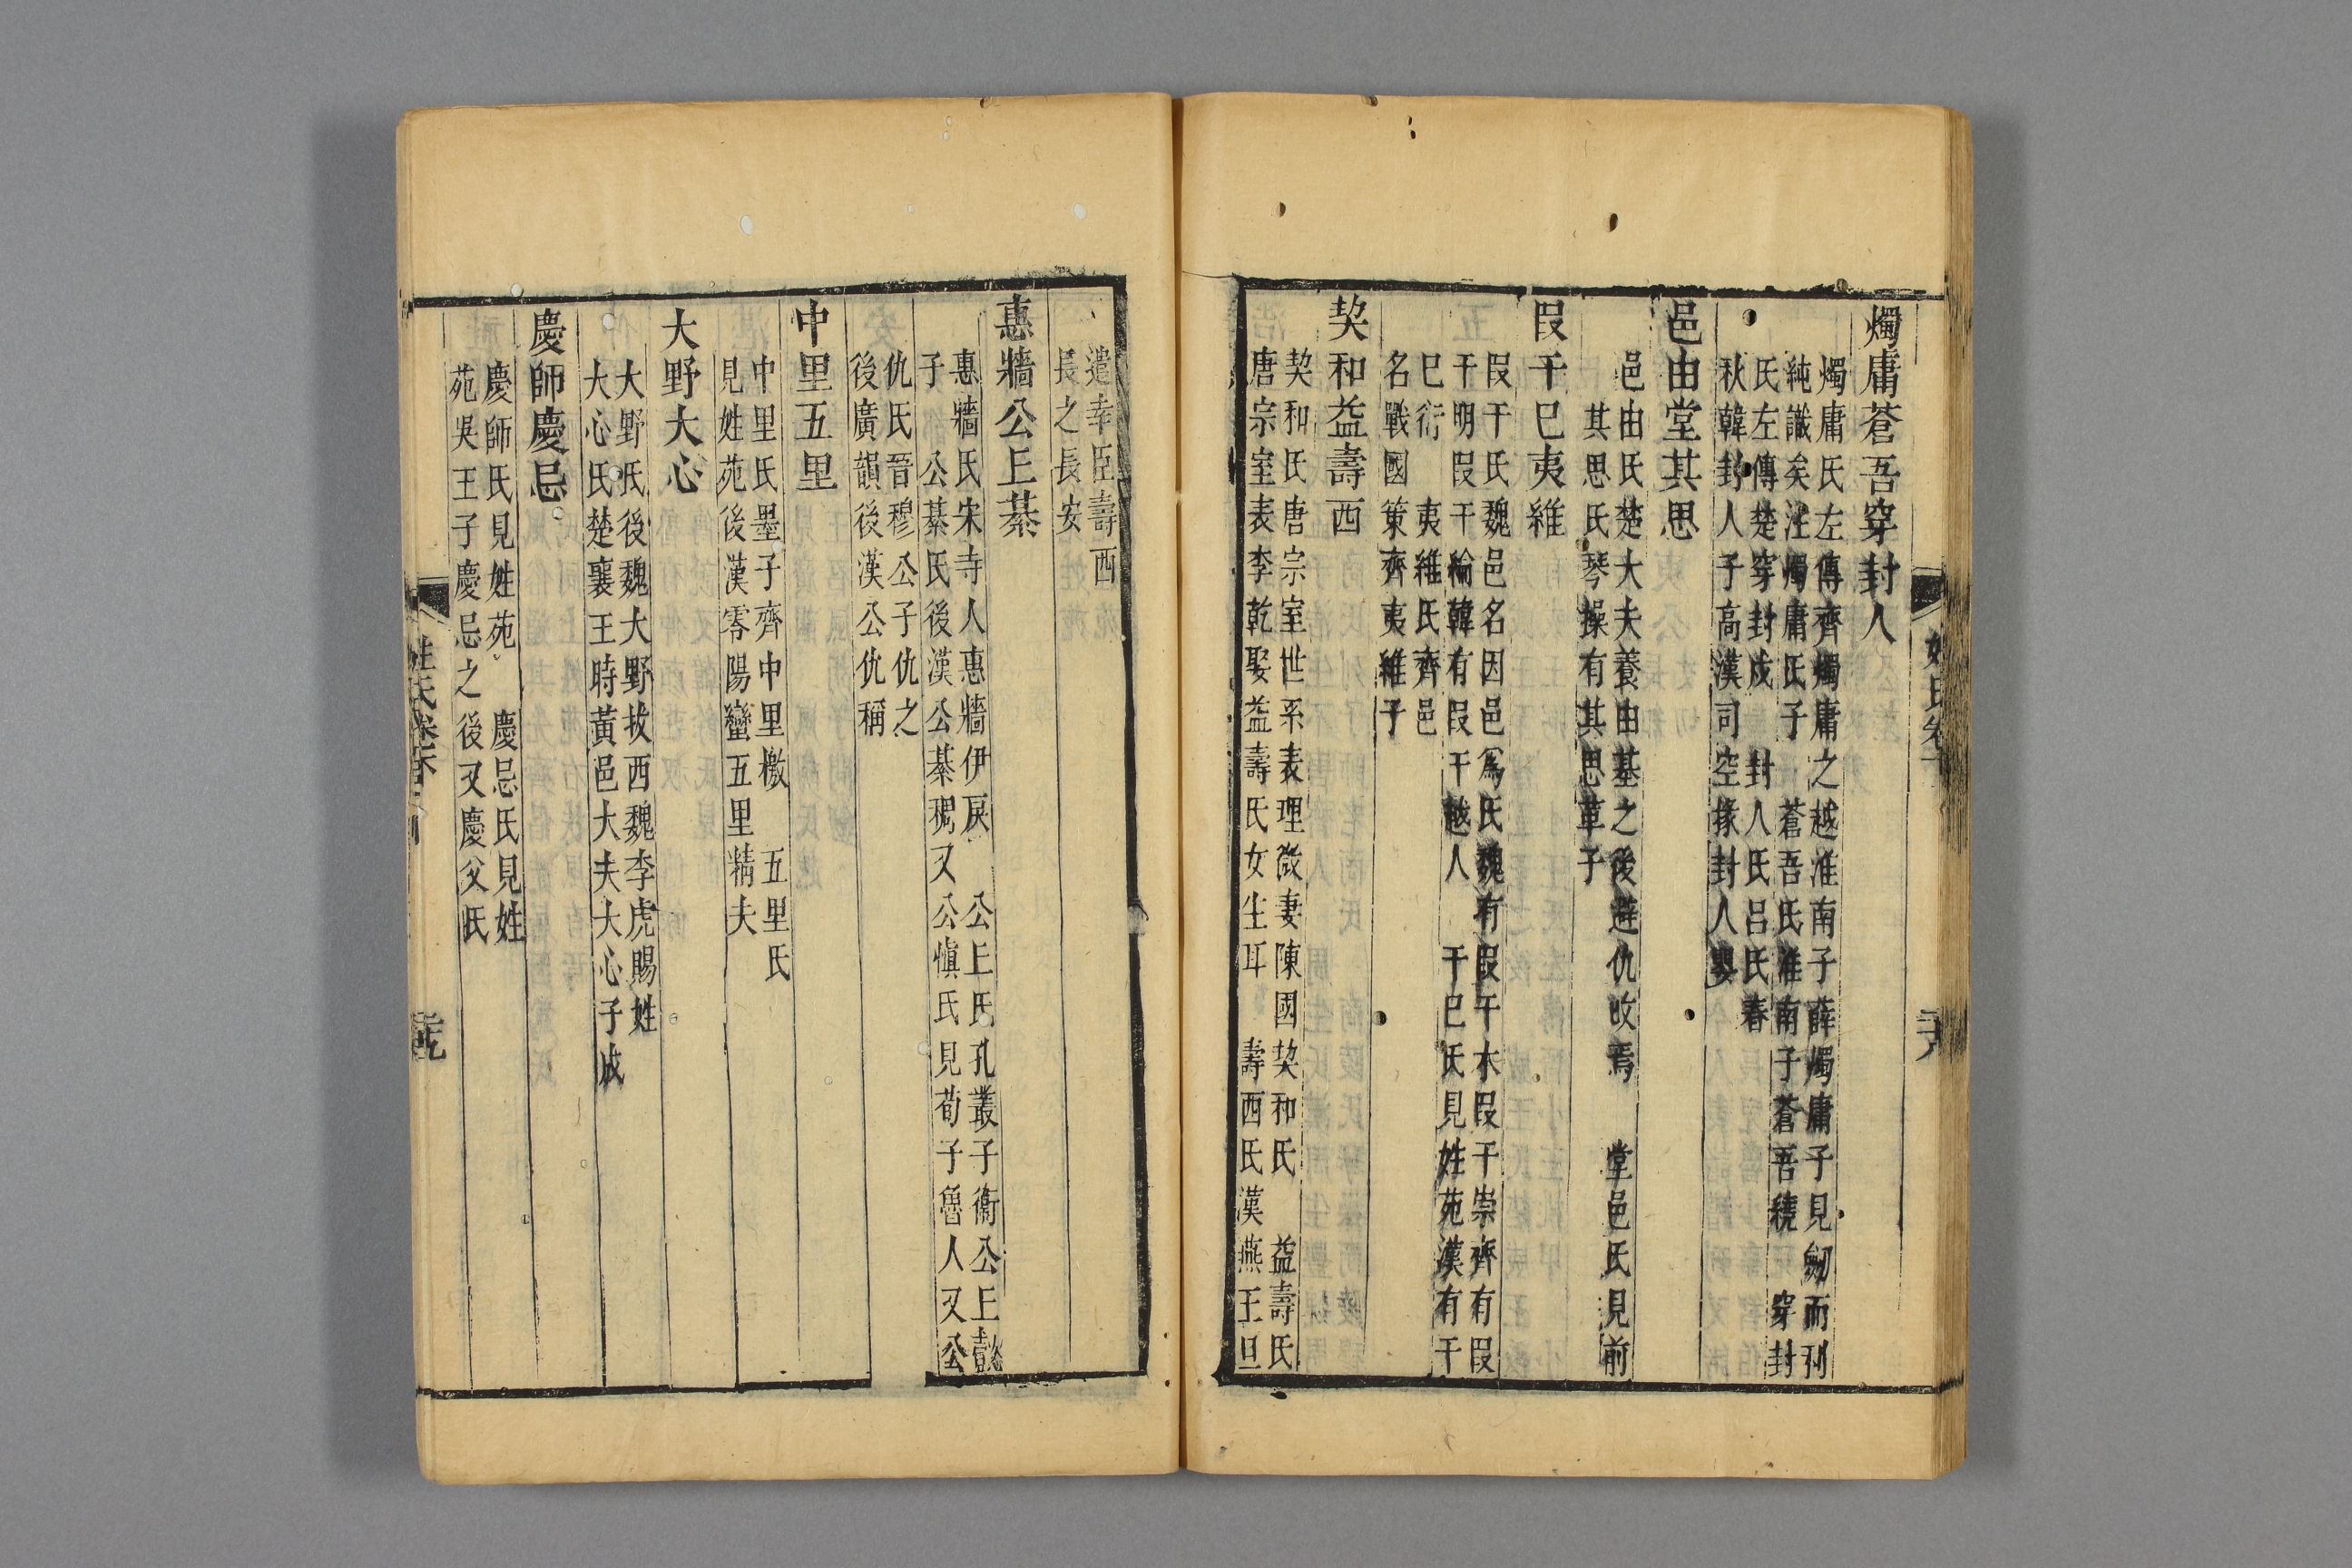 燭庸蒼吾穿封人
燭庸氏左傳齊燭庸之越淮南子薛燭庸子見劒而刋
純識矣注燭庸氏子　蒼吾氏淮南子蒼吾繞　穿封
氏左傳楚穿封戍　封人氏呂氏春
秋韓封人子高漢司空掾封人嬰
邑由堂其思
邑由氏楚大夫養由基之後避仇攺焉　堂邑氏見前
其思氏琴操有其思革子
叚干巳夷維
叚干氏魏邑名因邑爲氏魏有叚干木叚干崇齊有叚
干明叚干綸韓有叚干越人　干巳氏見姓苑漢有干
巳衍　夷維氏齊邑
名戰國策齊夷維子
契和益壽西
契和氏唐宗室世系表理微妻陳國契和氏　益壽氏
唐宗室表李乾娶益壽氏女生耳　壽西氏漢燕王旦
姓氏卷
六
遣幸臣壽西
長之長安
惠牆公上綦
惠牆氏宋寺人惠牆伊戾　公上氏孔叢子衞公上懿
子　公綦氏後漢公綦稠又公愼氏見荀子魯人又公
仇氏晉穆公子仇之
後廣韻後漢公仇稱
中里五里
中里氏墨子齊中里檄　五里氏
見姓苑後漢零陽蠻五里精夫
大野大心
大野氏後魏大野拔西魏李虎賜姓
大心氏楚襄王時黃邑大夫大心子成
慶師慶忌
慶師氏見姓苑　慶忌氏見姓
苑吳王子慶忌之後又慶父氏
姓氏卷